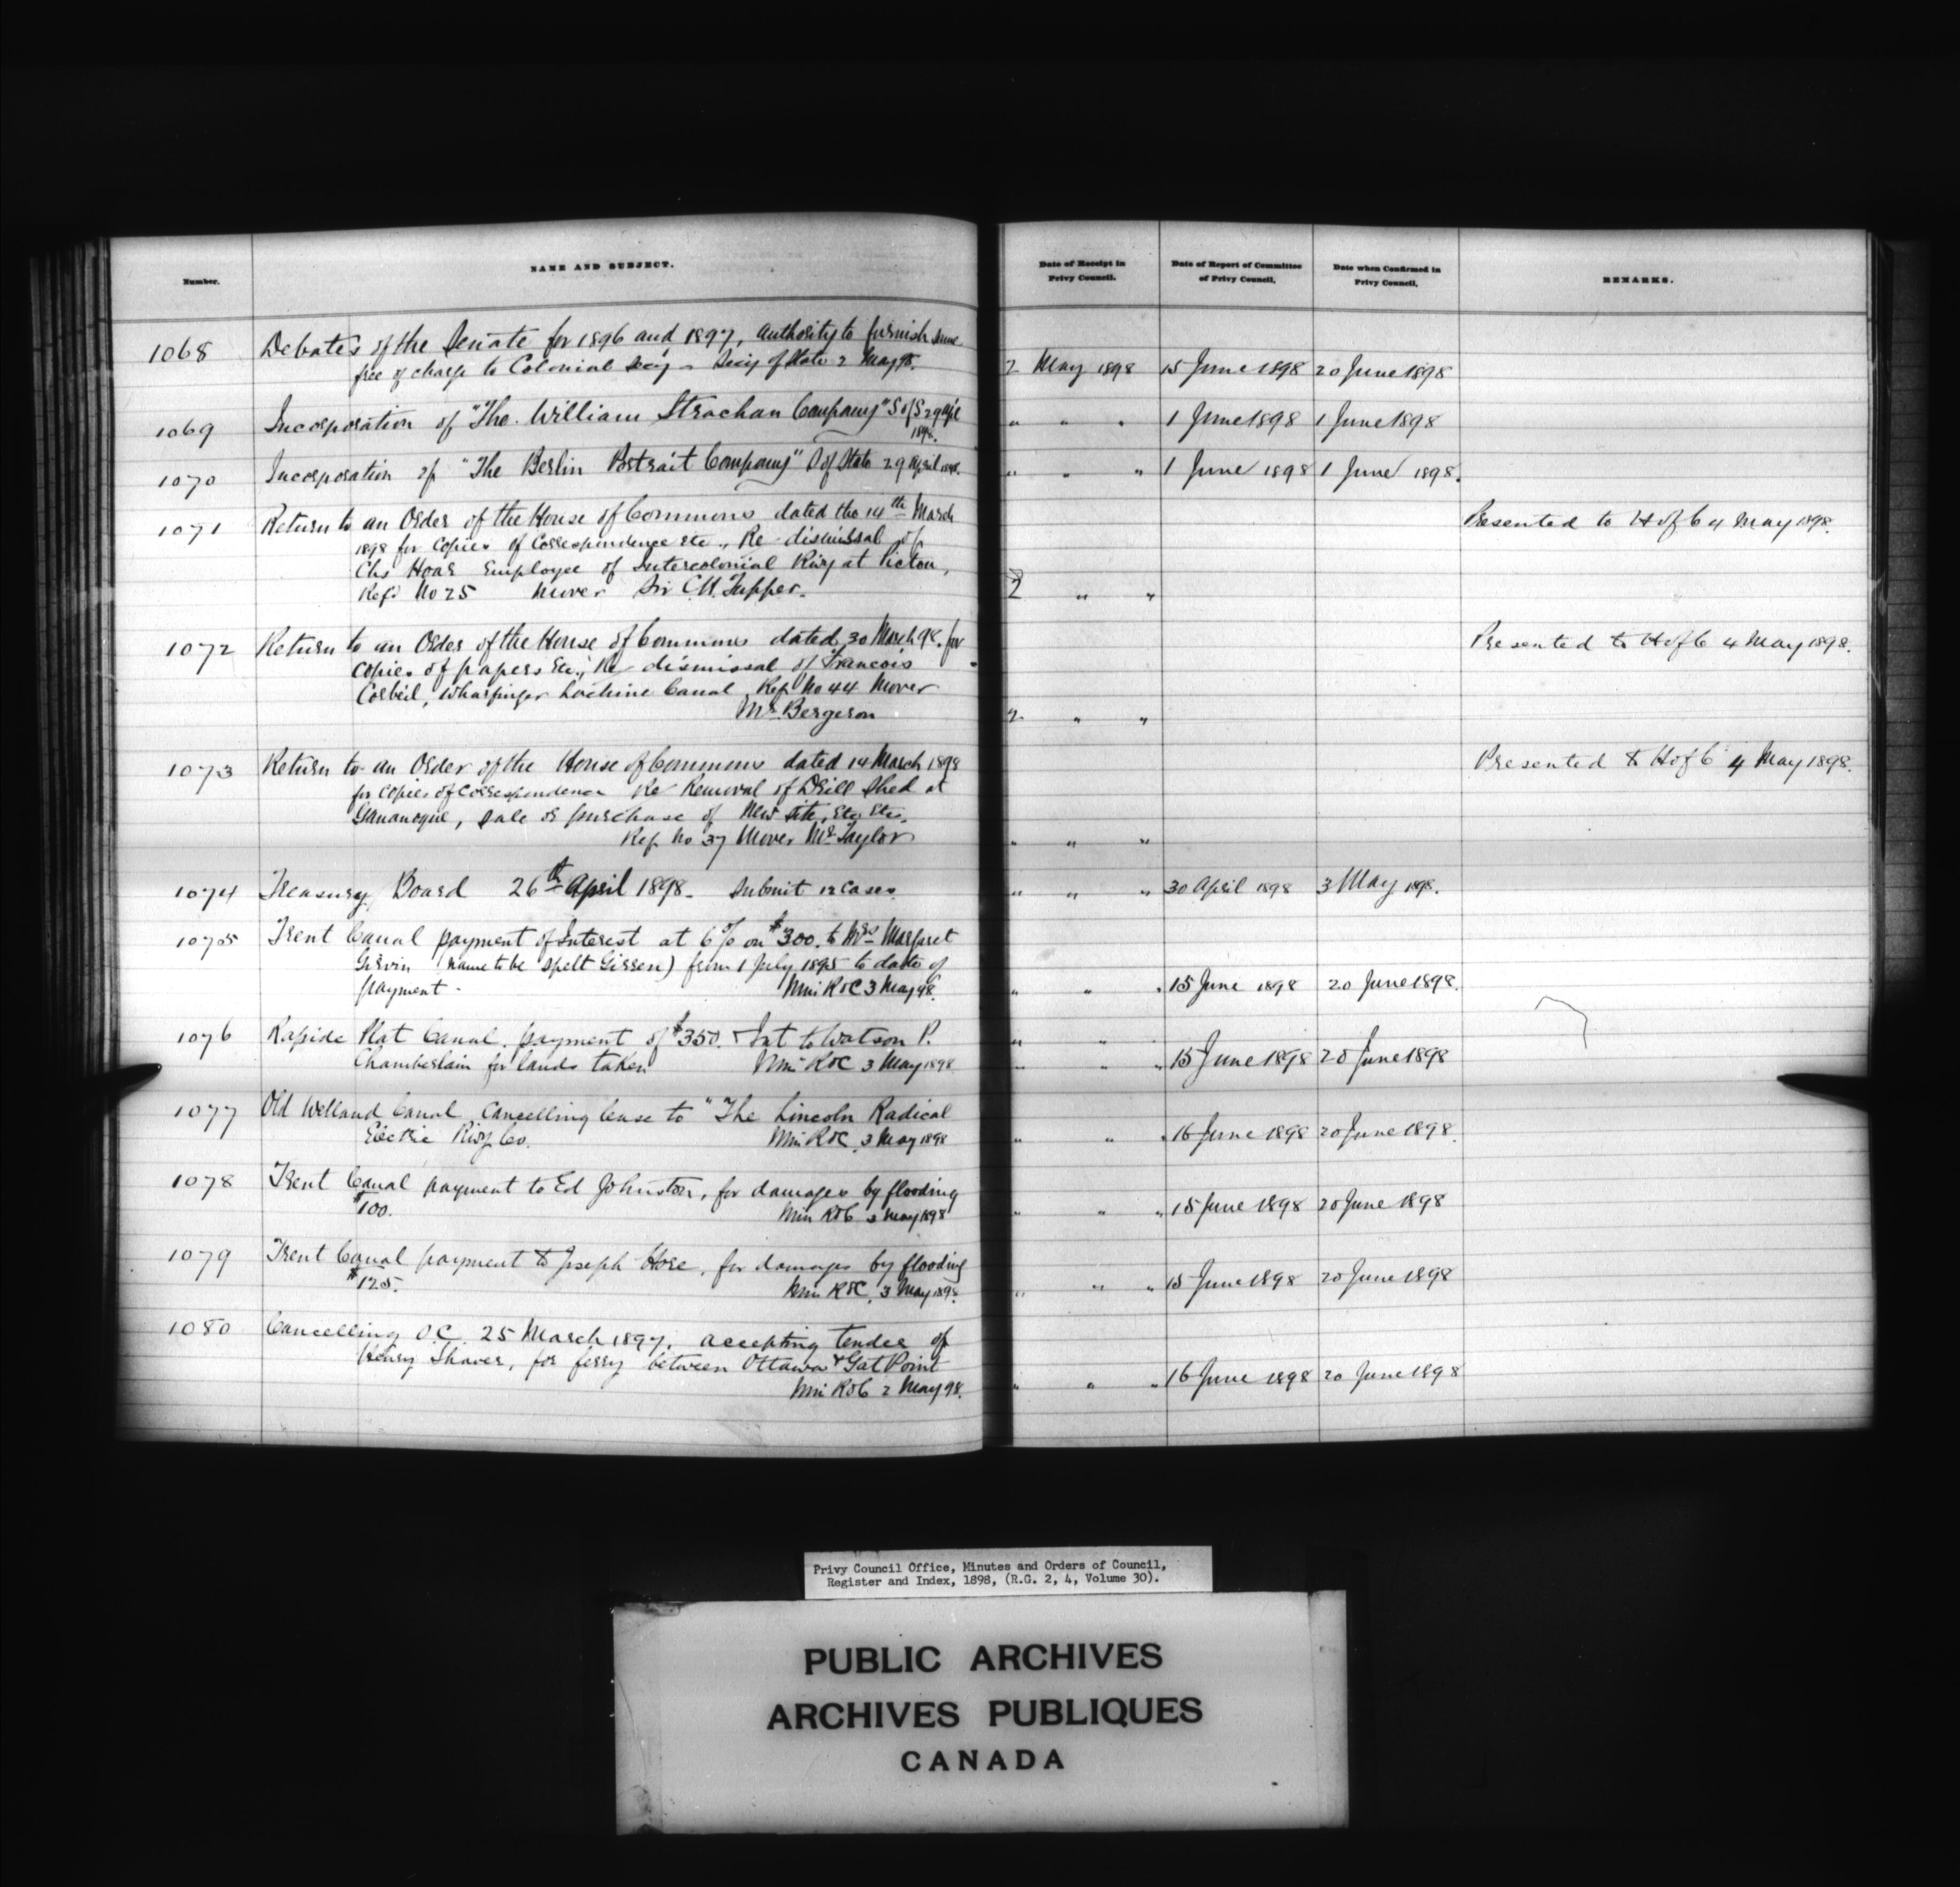 Number.
NAME AND SUBJECT.
Date of Receipt in
Privy Council.
Date of Report of Committee
of Privy Council,
Date when Confirmed in
Privy Council,
REMARKS.
1068 Debates of the Senate for 1896 and 1897, authority to furnish same
free of charge to Colonial Secy - Secy of State 2 May 98.
2 May 1898 15 June 1898 20 June 1898
1069 Incorporation of "The William Strachan Company" S of S 29 Apl
1898.
" " " 1 June 1898 1 June 1898
1070 Incorporation of "The Berlin Portrait Company" S of State 29 April 1898.
" " " 1 June 1898 1 June 1898.
1071 Return to an Order of the House of Commons dated the 14th March
1898 for Copies of Correspondence etc., Re dismissal of
Chs Hoar Employee of Intercolonial Rwy at Pictou,
Ref. No 25 Mover Sir C.H. Tupper.
2 " "
Presented to H of C 4 May 1898.
1072 Return to an Order of the House of Commons dated 30 March 98. for
Copies of papers Etc., Re dismissal of Francois
Corbeil, Wharfinger Lachine Canal Ref No 44 Mover
Mr. Bergeron
2 " "
Presented to H of C 4 May 1898.
1073 Return to an Order of the House of Commons dated 14 March 1898
for Copies of Correspondence Re Removal of Drill Shed at
Gananoque, Sale or purchase of New Site, Etc Etc.
Ref. No 37 Mover Mr Taylor
" " "
Presented to H of C 4 May 1898.
1074 Treasury Board 26th April 1898. Submit 12 Cases.
" " " 30 April 1898 3 May 1898.
1075 Trent Canal payment of Interest at 6% on $300. to Mrs Margaret
Girvin (name to be spelt Girren) from 1 July 1895 to date of
payment - Min R&C 3 May 98.
" " " 15 June 1898 20 June 1898.
1076 Rapide Plat Canal. payment of $350. & Int to Watson P.
Chamberlain for lands taken Min R&C 3 May 1898
" "
" " " 15 June 1898 20 June 1898
1077 Old Welland Canal, Cancelling lease to "The Lincoln Radical
Electric Rwy Co. Min R&C. 3 May 1898
" " " 16 June 1898 20 June 1898.
1078 Trent Canal payment to Ed Johnston, for damages by flooding
$100. Min R&C 3 May 1898
" " " 15 June 1898 20 June 1898
1079 Trent Canal payment to Joseph Hore, for damages by flooding
$125. Min R&C. 3 May 1898.
" " " 15 June 1898 20 June 1898
1080 Cancelling O.C. 25 March 1897, accepting tender of
Henry Shaver, for ferry between Ottawa & Gat Point
Min R&C 2 May 98.
" " " 16 June 1898 20 June 1898
Privy Council Office, Minutes and Orders of Council,
Register and Index, 1898, (R.G. 2, 4, Volume 30).
PUBLIC ARCHIVES
ARCHIVES PUBLIQUES
CANADA